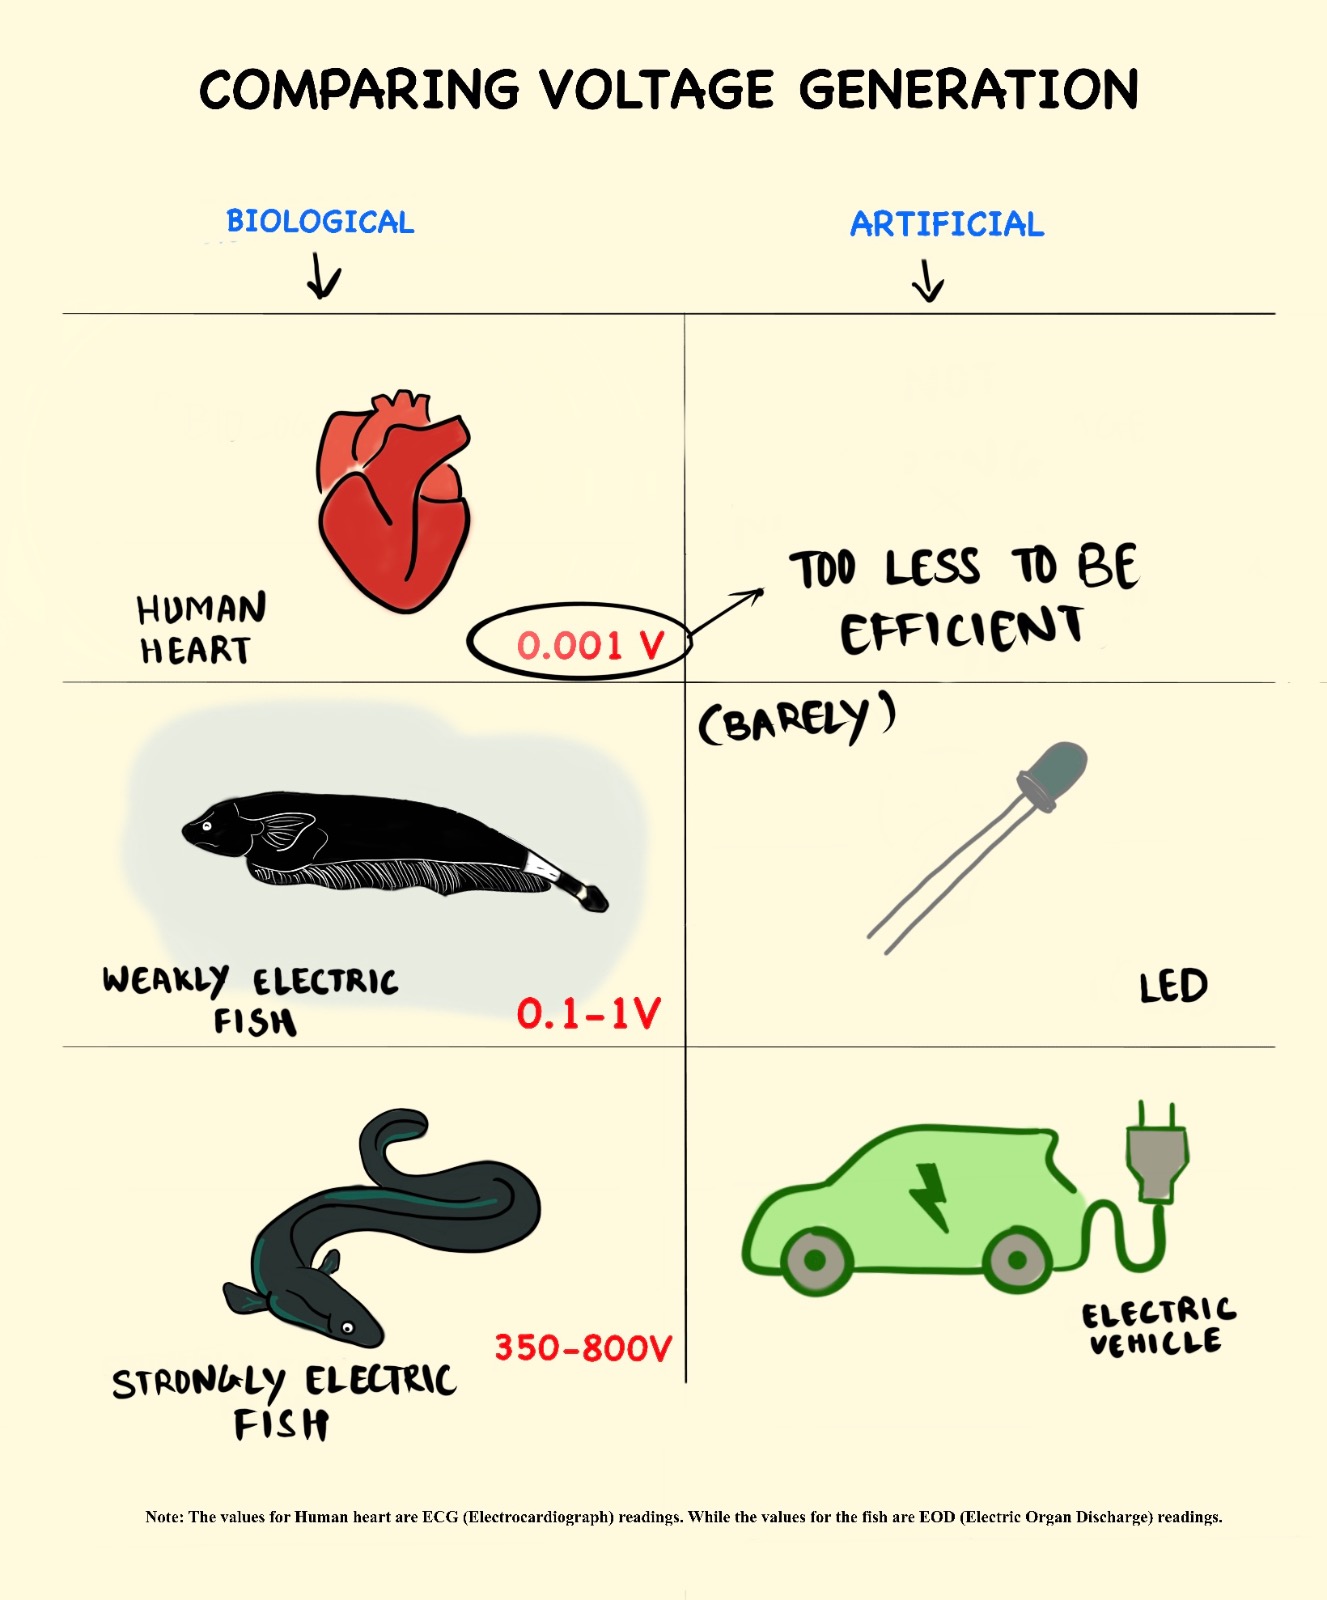 COMPARING VOLTAGE GENERATION
BIOLOGICAL
ARTIFICIAL
HUMAN
HEART
0.001 V
TOO LESS TO BE
EFFICIENT
WEAKLY ELECTRIC
FISH
0.1-1V
(BARELY)
LED
STRONGLY ELECTRIC
FISH
350-800V
ELECTRIC
VEHICLE
Note: The values for Human heart are ECG (Electrocardiograph) readings. While the values for the fish are EOD (Electric Organ Discharge) readings.